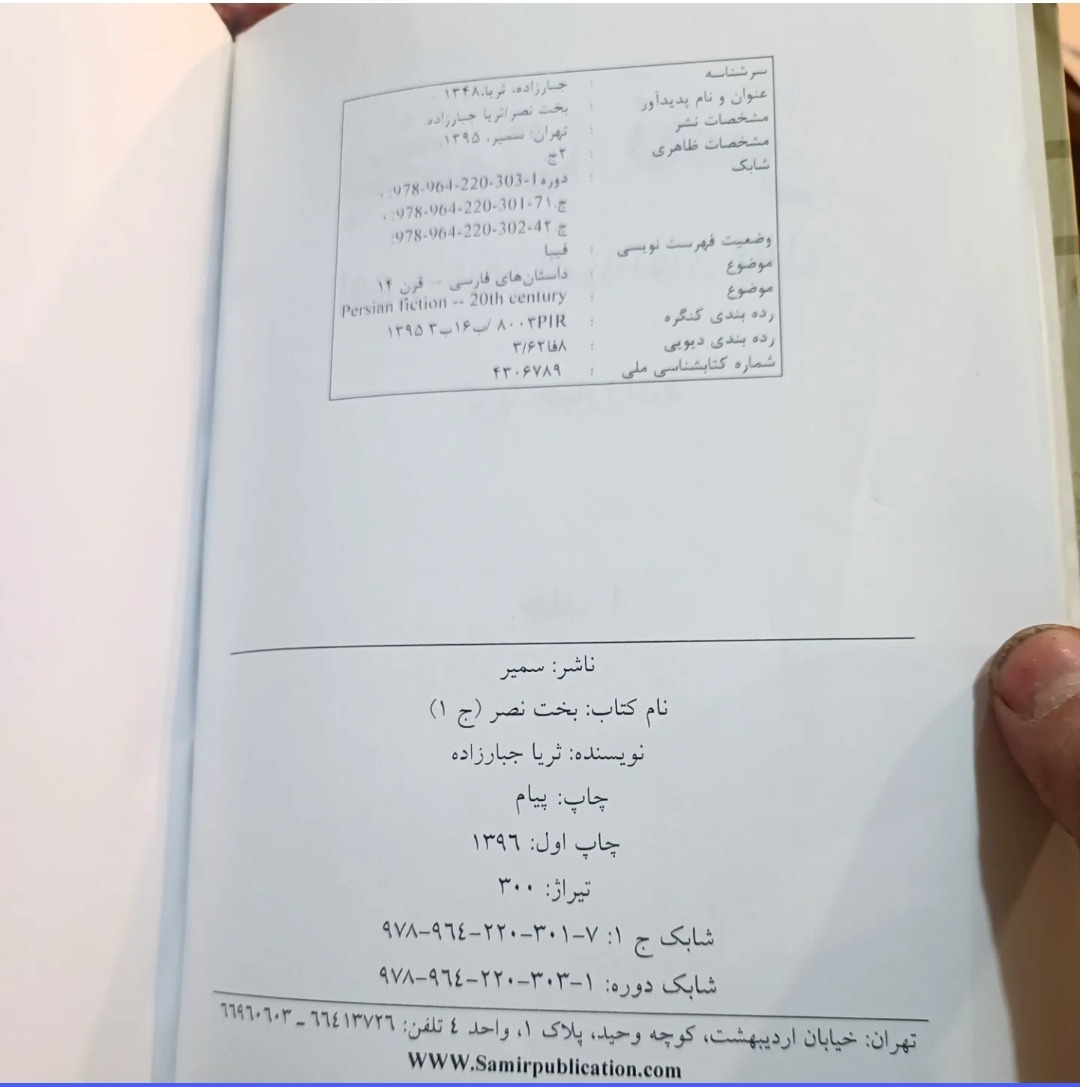 سرشناسه : جبارزاده، ثریا، ۱۳۴۸ -
عنوان و نام پدیدآور : بخت نصر/ثریا جبارزاده.
مشخصات نشر : تهران: سمیر، ۱۳۹۵.
مشخصات ظاهری : ۲ج.
شابک : دوره ۱-978-964-220-303: .
ج.۷۱-978-964-220-301: .
ج.۴۲-978-964-220-302:
وضعیت فهرست نویسی : فیپا
موضوع : داستان‌های فارسی -- قرن ۱۴
موضوع : Persian fiction -- 20th century
رده بندی کنگره : ۸۰۰۳PIR /ب۱۶ب۳ ۱۳۹۵
رده بندی دیویی : ۸فا۳/۶۲
شماره کتابشناسی ملی : ۴۳۰۶۷۸۹
ناشر: سمیر
نام کتاب: بخت نصر (ج ۱)
نویسنده: ثریا جبارزاده
چاپ: پیام
چاپ اول: ۱۳۹٦
تیراژ: ۳۰۰
شابک ج ۱: ۷-۳۰۱-۲۲۰-۹٦٤-۹۷۸
شابک دوره: ۱-۳۰۳-۲۲۰-۹٦٤-۹۷۸
تهران: خیابان اردیبهشت، کوچه وحید، پلاک ۱، واحد ٤ تلفن: ٦٦٤۱۳۷۲٦ ـ ٦٦۹٦۰٦۰۳
WWW.Samirpublication.com